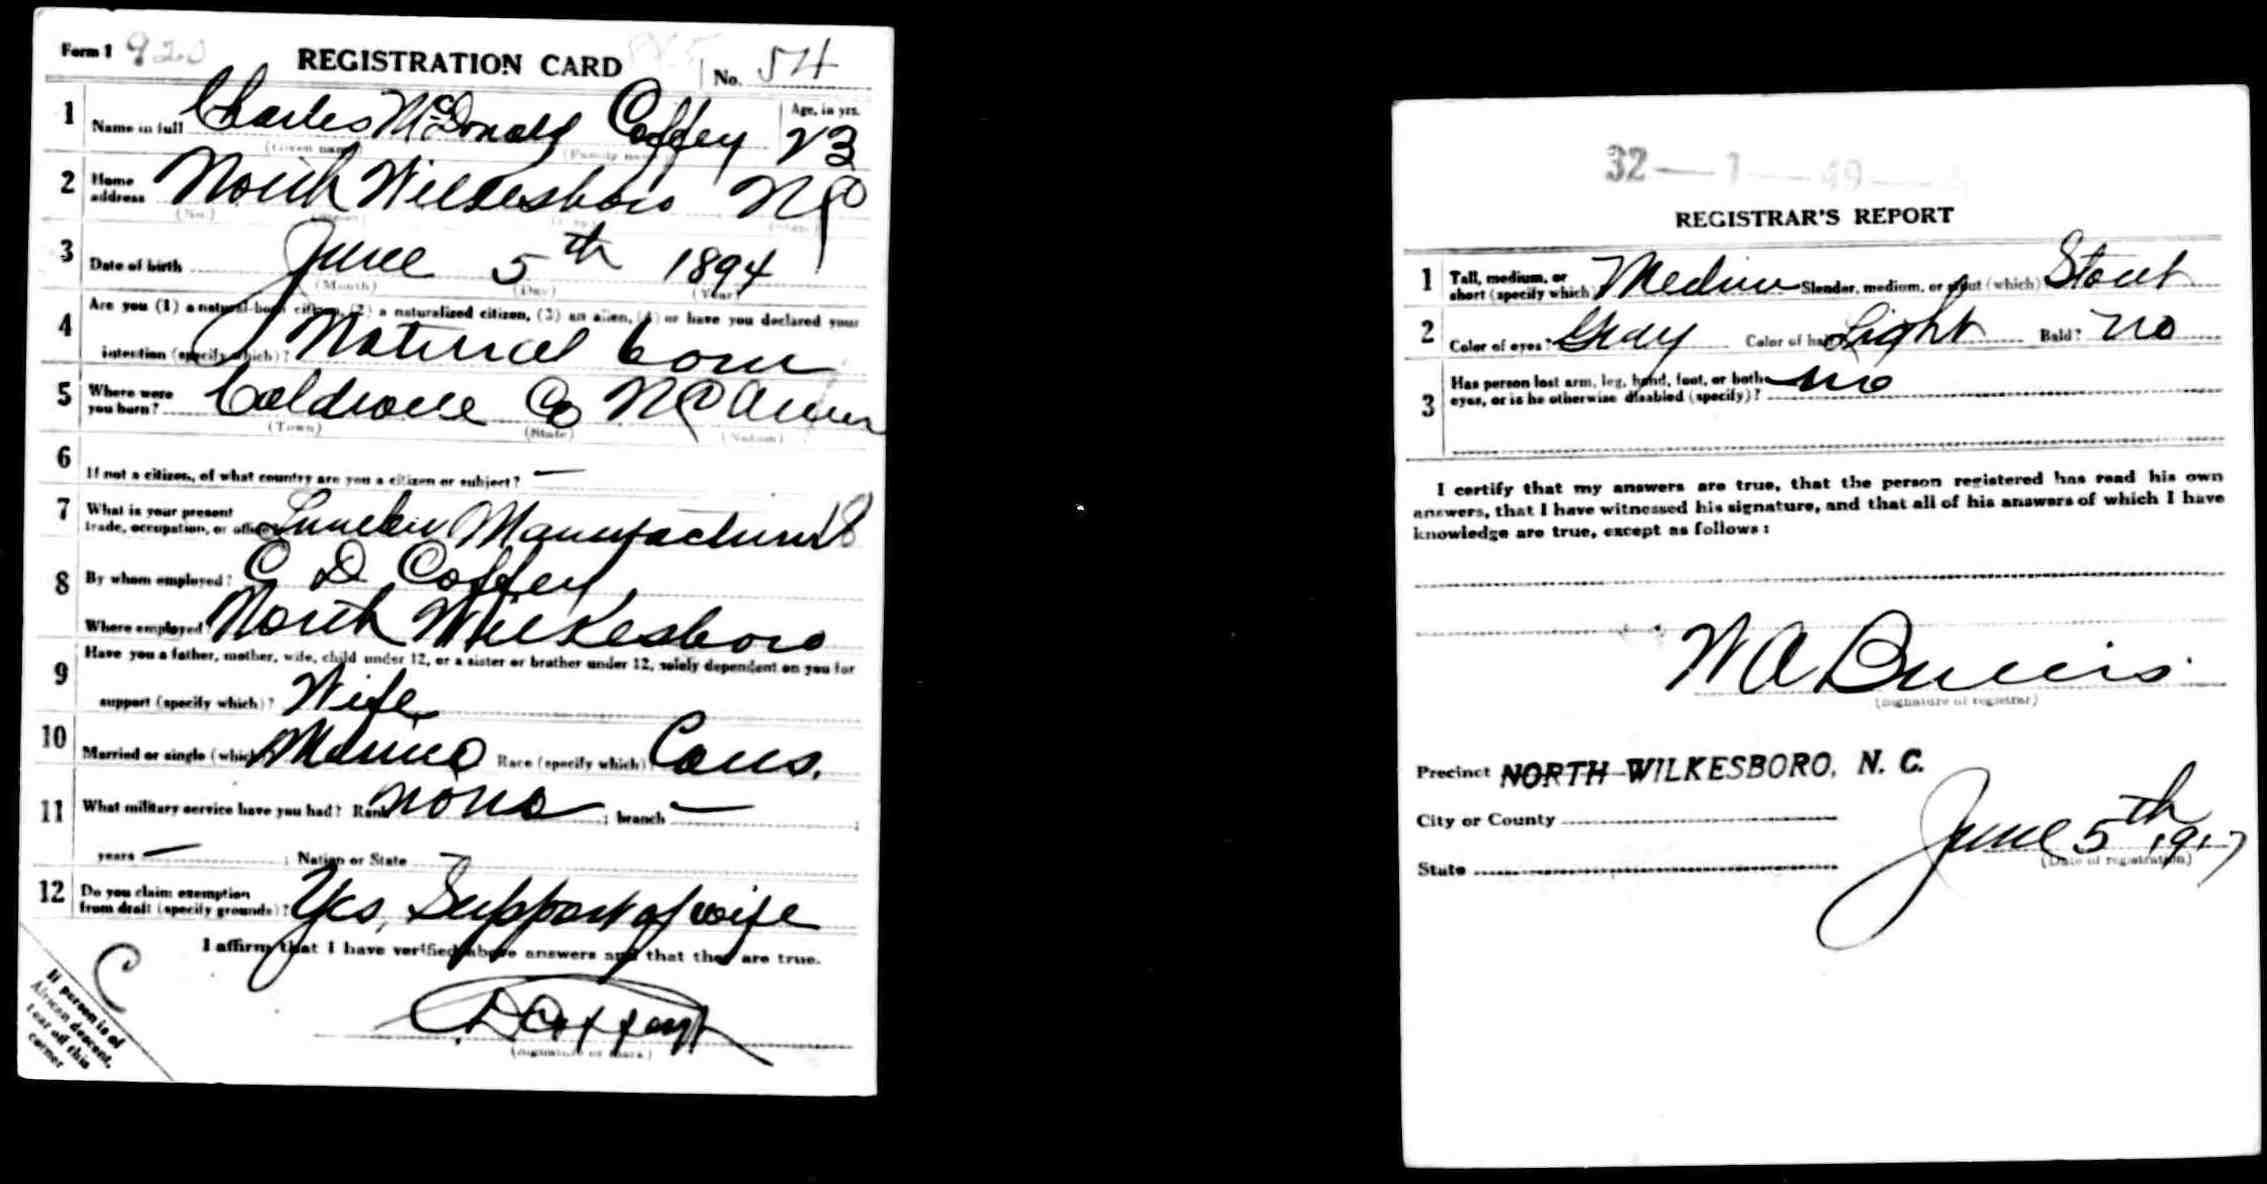 Form 1 920 REGISTRATION CARD No. 54
1 Name in full Charles McDonald Coffey Age, in yrs. 23
(Given name) (Family name)
2 Home address North Wilkesboro NC
(No.) (Street) (City) (State)
3 Date of birth June 5th 1894
(Month) (Day) (Year)
4 Are you (1) a natural-born citizen, (2) a naturalized citizen, (3) an alien, (4) or have you declared your
intention (specify which)? Natural born
5 Where were you born? Caldwell Co NC Amer
(Town) (State) (Nation)
6 If not a citizen, of what country are you a citizen or subject? —
7 What is your present trade, occupation, or office? Lumber Manufacturer 18
8 By whom employed? C D Coffey
Where employed? North Wilkesboro
9 Have you a father, mother, wife, child under 12, or a sister or brother under 12, solely dependent on you for
support (specify which)? Wife
10 Married or single (which)? Married Race (specify which)? Caus.
11 What military service have you had? Rank None ; branch — ;
years — ; Nation or State
12 Do you claim exemption from draft (specify grounds)? Yes, Support of wife
I affirm that I have verified above answers and that they are true.
C
(Signature or mark)
If person is of
African descent,
tear off this
corner
32 — 7 — 49 —
REGISTRAR'S REPORT
1 Tall, medium, or short (specify which)? Medium Slender, medium, or stout (which)? Stout
2 Color of eyes? Gray Color of hair? Light Bald? No
3 Has person lost arm, leg, hand, foot, or both eyes, or is he otherwise disabled (specify)? No
I certify that my answers are true, that the person registered has read his own
answers, that I have witnessed his signature, and that all of his answers of which I have
knowledge are true, except as follows:
W A
(Signature of registrar)
Precinct NORTH WILKESBORO, N. C.
City or County
State
June 5th 1917
(Date of registration)